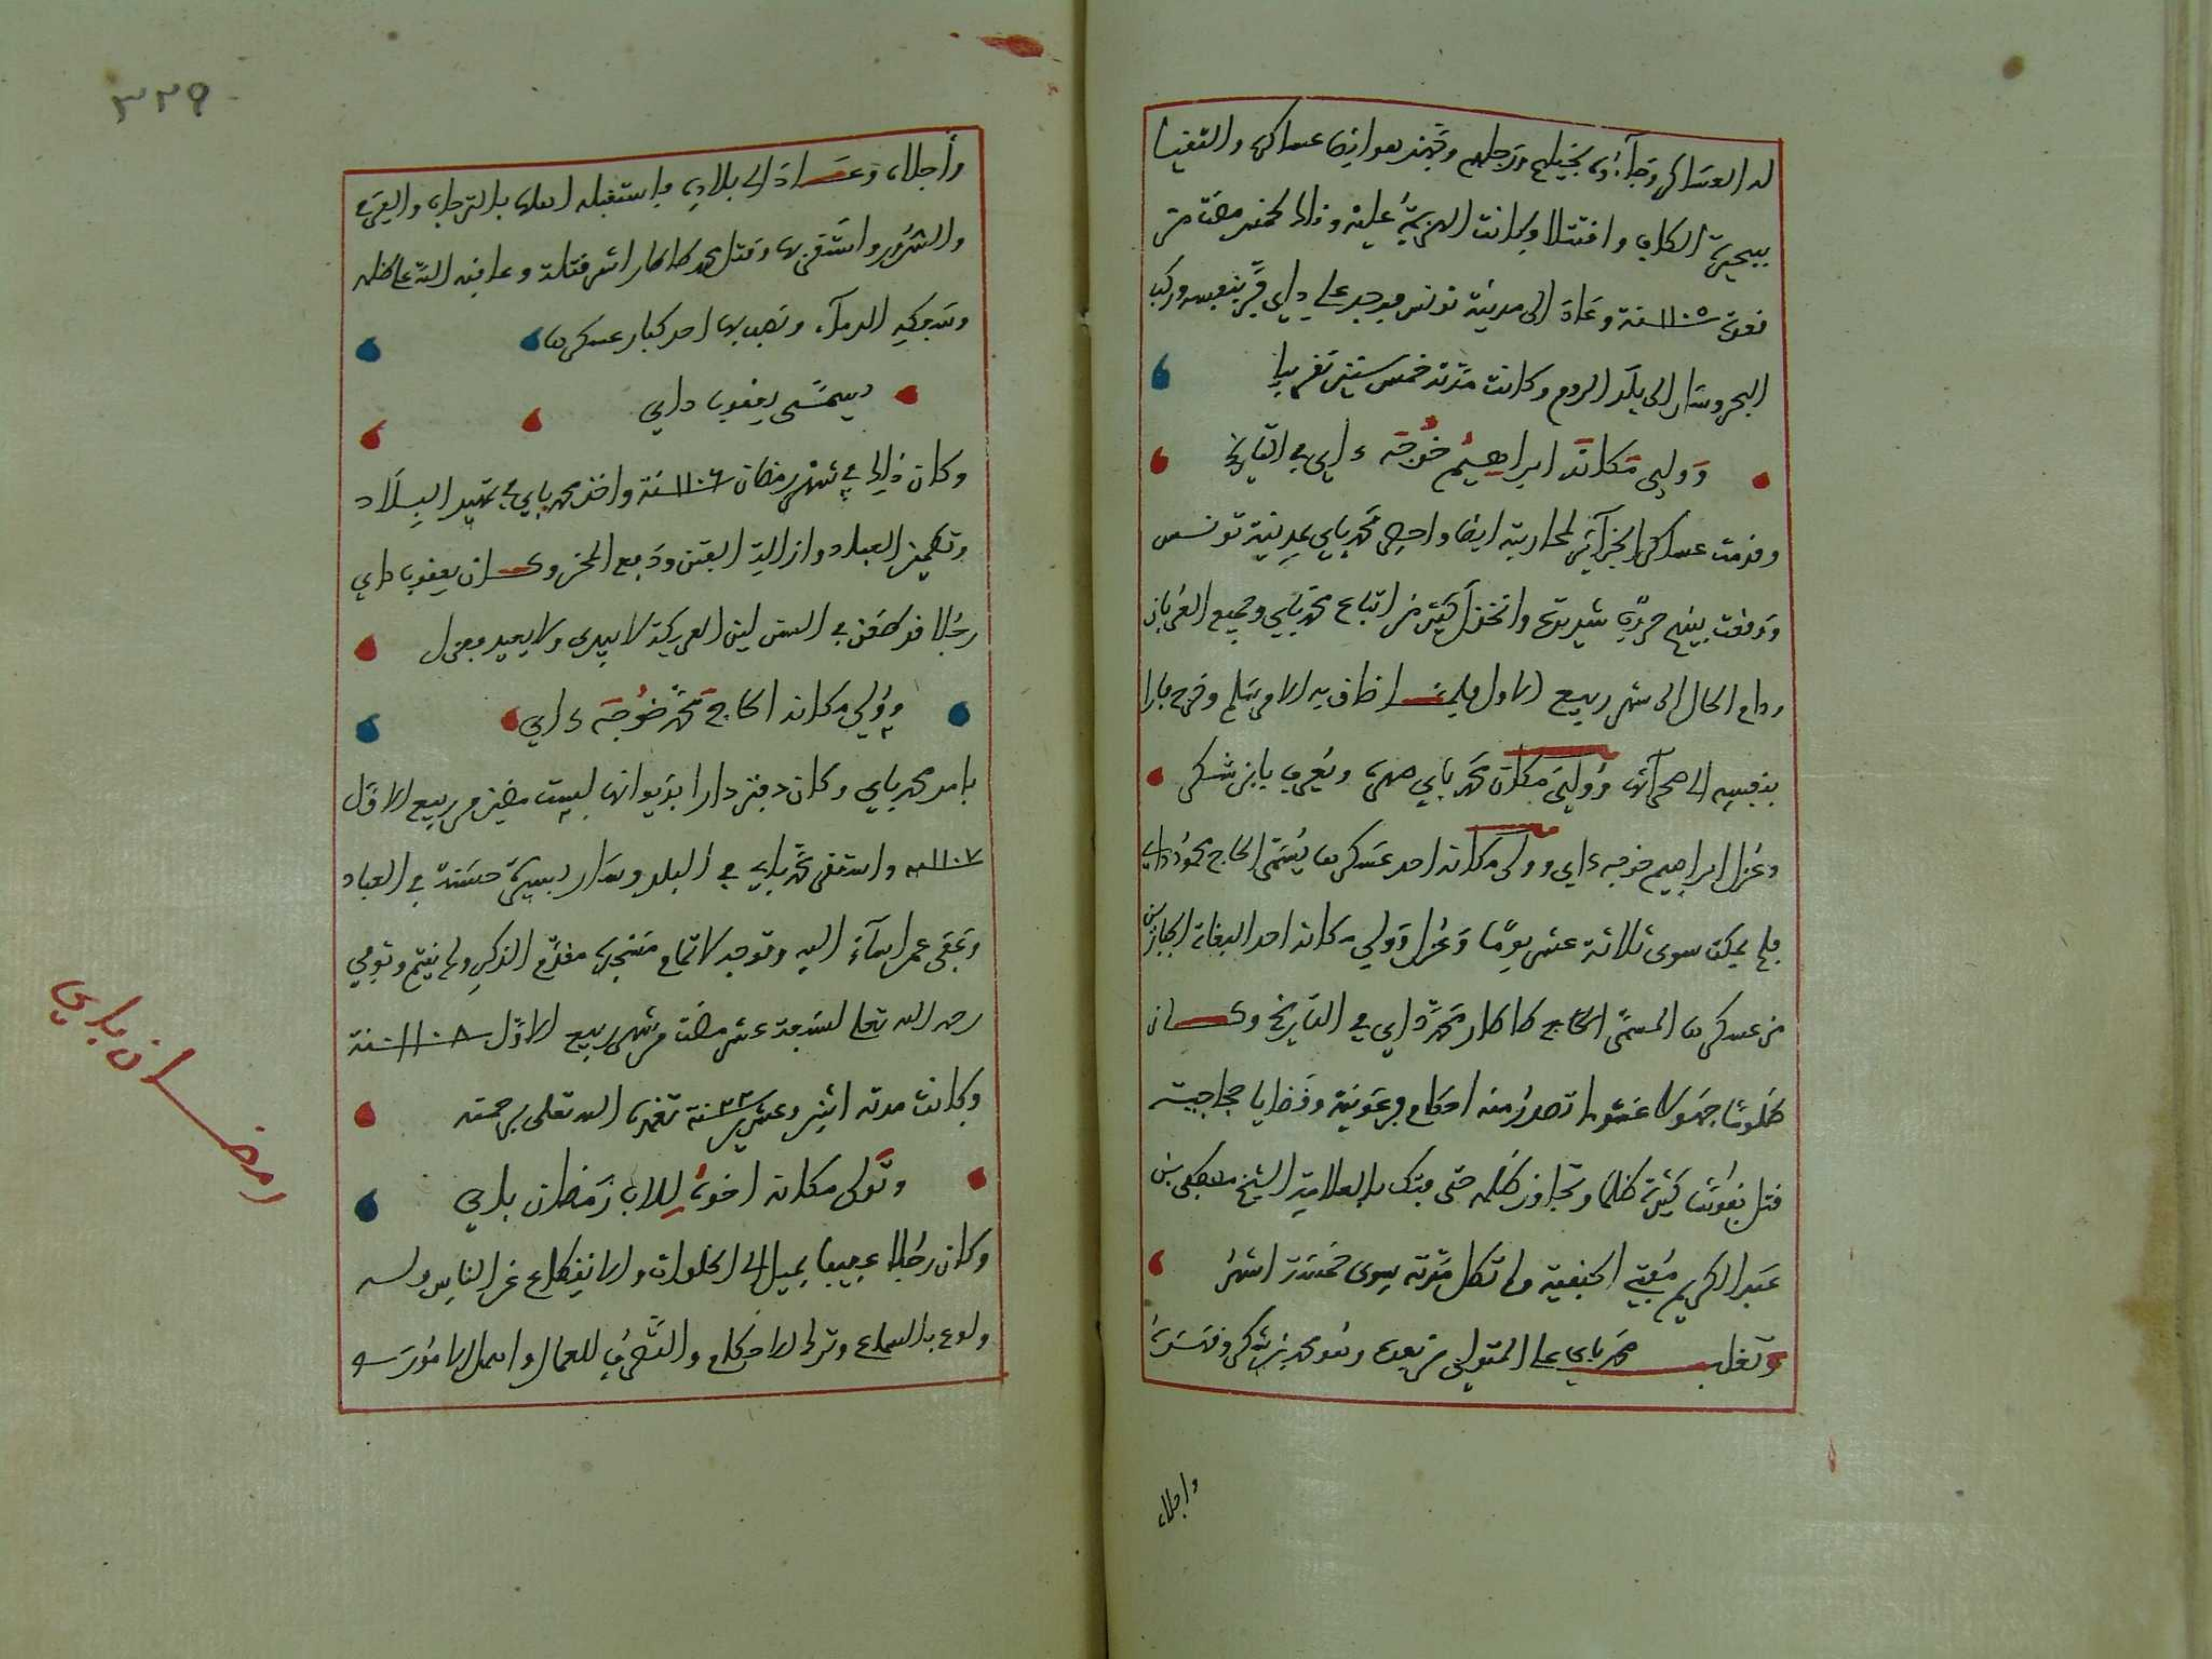 له العساكر وجآءوا بخيلهم ورجلهم وتجهز هو ايضا عساكره والتقيا
ببحيرة الكاف واقتتلا وكانت الهزيمة عليه وذلك لخمس مضت من
قعدة ١١٠٥ سنة وعاد الى مدينة تونس فوجد علي داي فر بنفسه وركب
البحر وسار الى بلد الروم وكانت مدته خمس سنين تقريبا
وولي مكانه ابراهيم خوجه داي في التاريخ
وقدمت عساكر الجزآئر لمحاربته ايضا واحصر محمد باي بمدينة تونس
ووقعت بينهم حروب شديدة وانخذل كثير من اتباع محمد باي وجميع العربان
ودام الحال الى شهر ربيع الاول فلما ضاق به الامر سلم وخرج فارا
بنفسه الى صحرآئه وولي مكانه محمد باي صهره ويعرف بابن شكر
وعزل ابراهيم خوجه داي وولى مكانه احد عسكرها يسمى الحاج محمود داي
فلم يمكث سوى ثلاثة عشر يوما وعزل وولي مكانه احد البغاة الجبارين
من عسكرها المسمى الحاج طاطار محمد داي في التاريخ وكان
ظلوما جهولا غشوما تصدر منه احكام فرعونية وقضايا حجاجية
قتل نفوسا كثيرة ظلما وتجاوز ظلمه حتى فتك بالعلامة الشيخ مصطفى بن
عبد الكريم مفتي الحنفية ولم تكل مدته سوى خمسة اشهر
وتغلب محمد باي على المتولي من بعده وهو محمد بن شكر
واجلاه
٣٢٩
وأجلاه وعاد الى بلاده واستقبله اهلها بالترحاب والفرح
والسرور واستقر بها وقتل محمد طاطار اشر قتلة وعاقبه الله على ظلمه
وسفكه الدمآء ونصب بها احد كبار عسكرها
يسمى يعقوب داي
وكان ذلك في شهر رمضان ١١٠٦ سنة واخذ محمد باي في تمهيد البلاد
وتطمين العباد وازالة الفتن ودفع المحن وكان يعقوب داي
رجلا قد طعن في السن لين العريكة لا يبدي ولا يعيد فعزل
وولي مكانه الحاج محمد خوجه داي
بامر محمد باي وكان دفتر دارا بديوانها لست مضين من ربيع الاول
١١٠٧ سنة واستقر محمد باي في البلد وسار بسيرة حسنة في العباد
وبقى عمر اسآء اليه وتوجه لاتمام مسجده مقدم الذكر ولم يتم وتوفي
رحمه الله تعلى لسبعة عشر مضت من شهر ربيع الاول ١١٠٨ سنة
وكانت مدته اثنين وعشرين ٢٢ سنة تغمده الله تعلى برحمته
وتولى مكانه اخوه للاب رمضان باي
وكان رجلا عجيبا يميل الى الخلوات والانقطاع عن الناس وله
ولوع بالسماع وترك الاحكام والتصرف للعمال واهمل الامور
رمضان باي